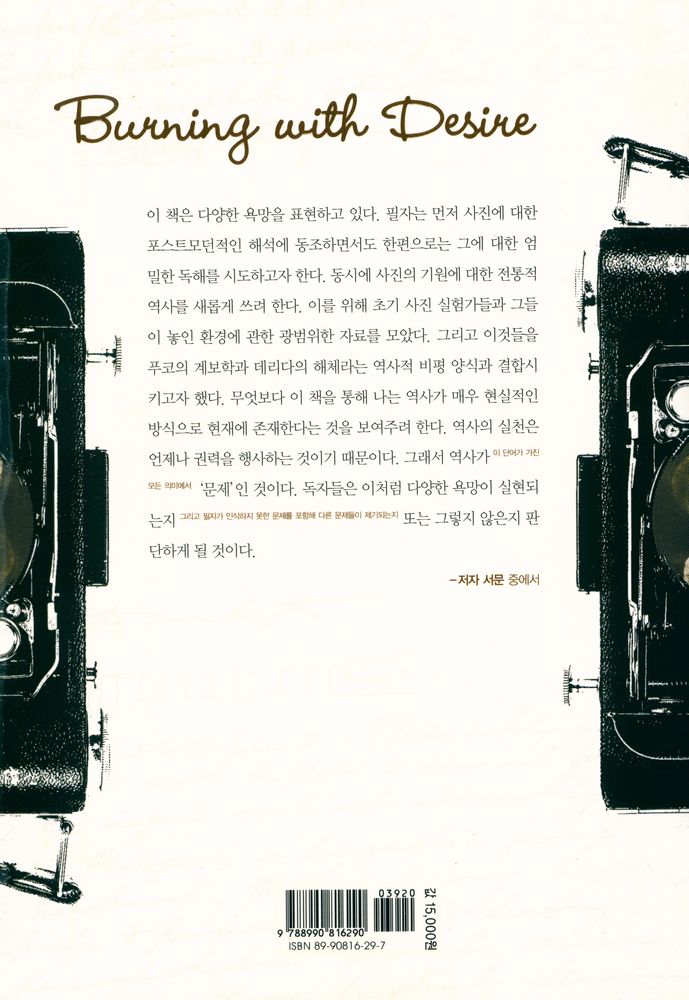 Burning with Desire
이 책은 다양한 욕망을 표현하고 있다. 필자는 먼저 사진에 대한
포스트모던적인 해석에 동조하면서도 한편으로는 그에 대한 엄
밀한 독해를 시도하고자 한다. 동시에 사진의 기원에 대한 전통적
역사를 새롭게 쓰려 한다. 이를 위해 초기 사진 실험가들과 그들
이 놓인 환경에 관한 광범위한 자료를 모았다. 그리고 이것들을
푸코의 계보학과 데리다의 해체라는 역사적 비평 양식과 결합시
키고자 했다. 무엇보다 이 책을 통해 나는 역사가 매우 현실적인
방식으로 현재에 존재한다는 것을 보여주려 한다. 역사의 실천은
언제나 권력을 행사하는 것이기 때문이다. 그래서 역사가 이 단어가 가진
모든 의미에서 ‘문제’인 것이다. 독자들은 이처럼 다양한 욕망이 실현되
는지 그리고 필자가 인식하지 못한 문제를 포함해 다른 문제들이 제기되는지 또는 그렇지 않은지 판
단하게 될 것이다.
–저자 서문 중에서
03920
9 788990 816290
ISBN 89-90816-29-7
값 15,000원